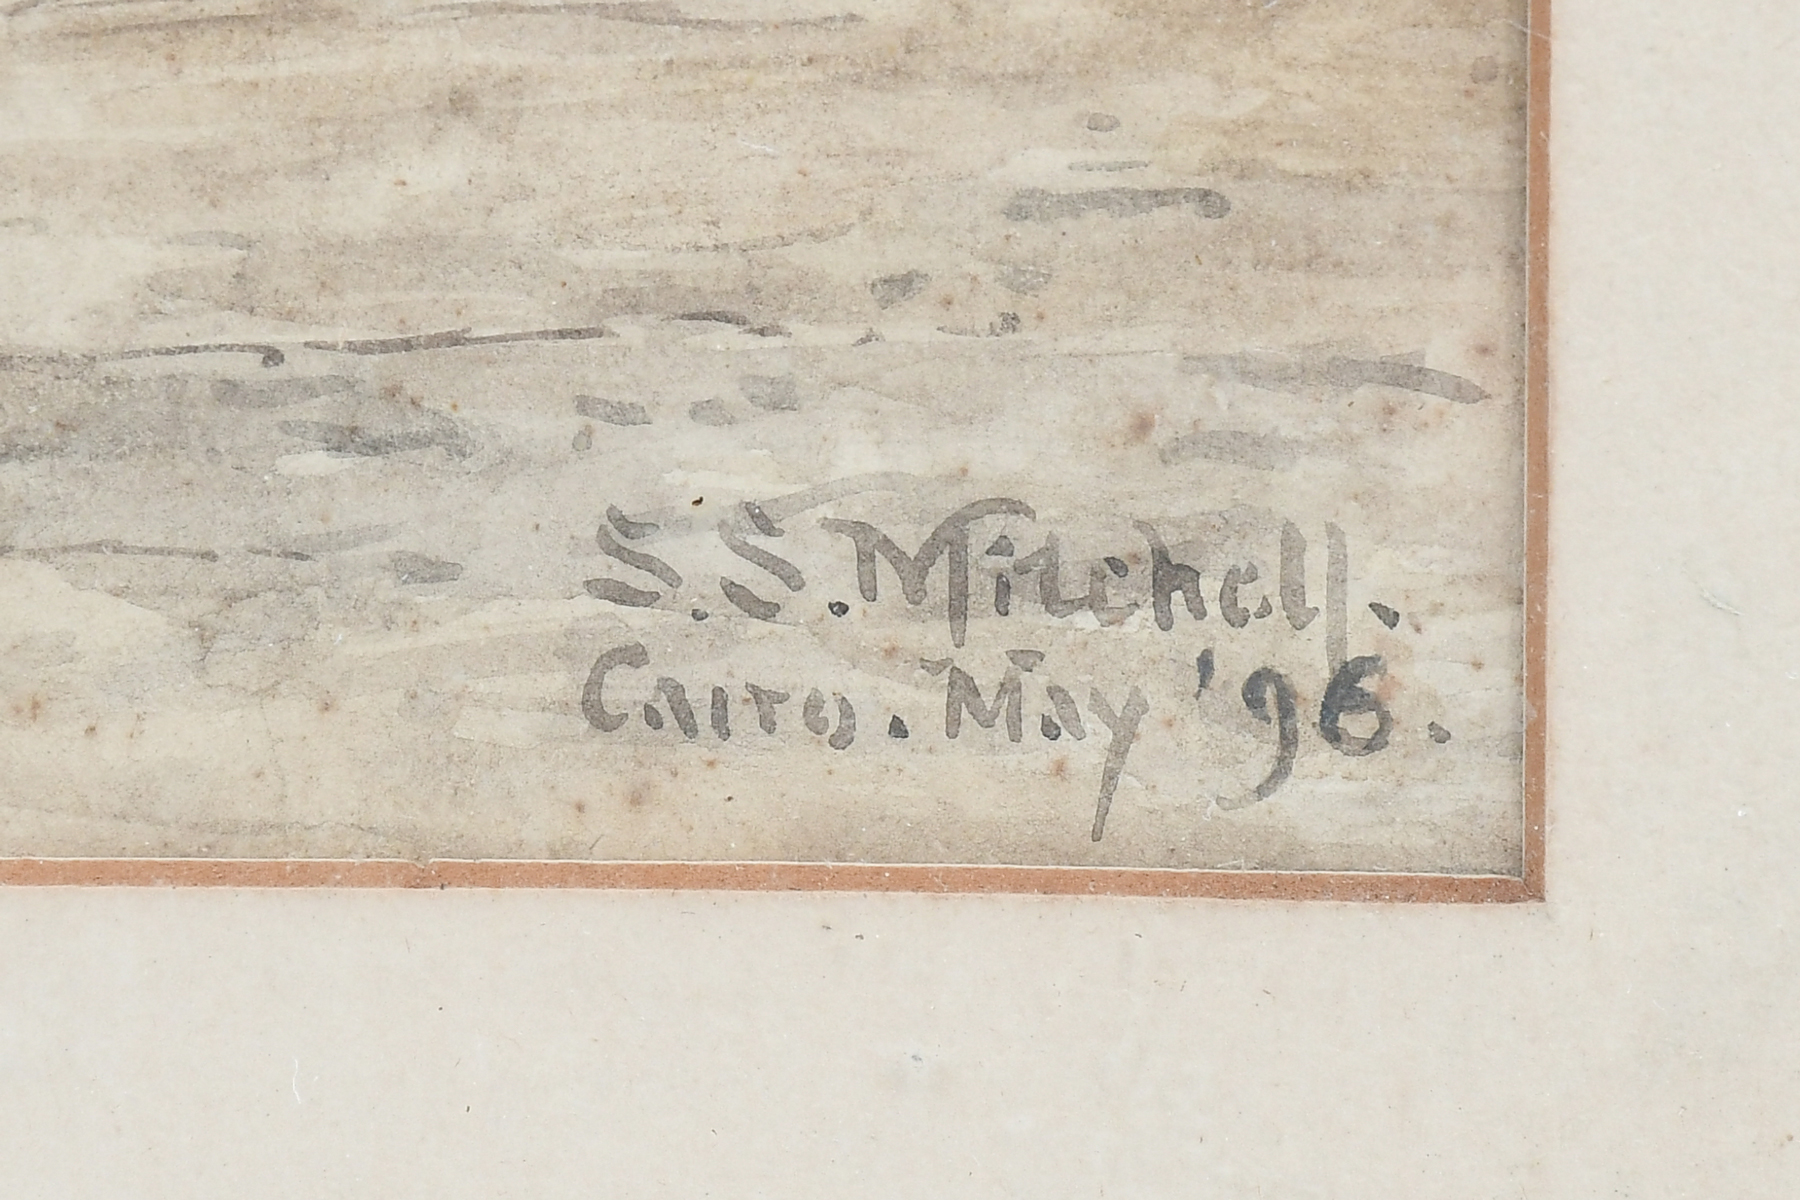 S.S.Mitchell.
Cairo. May '96.